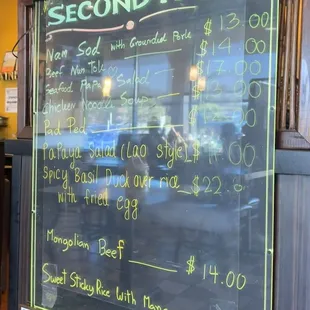 SECOND
Nam Sod with Grounded Pork $13.00
Beef Nam Tok $14.00
Seafood Salad $17.00
Chicken Noodle Soup
Pad Ped
Papaya Salad (Lao style)
Spicy Basil Duck over rice $22.
with fried egg
Mongolian Beef $14.00
Sweet Sticky Rice With